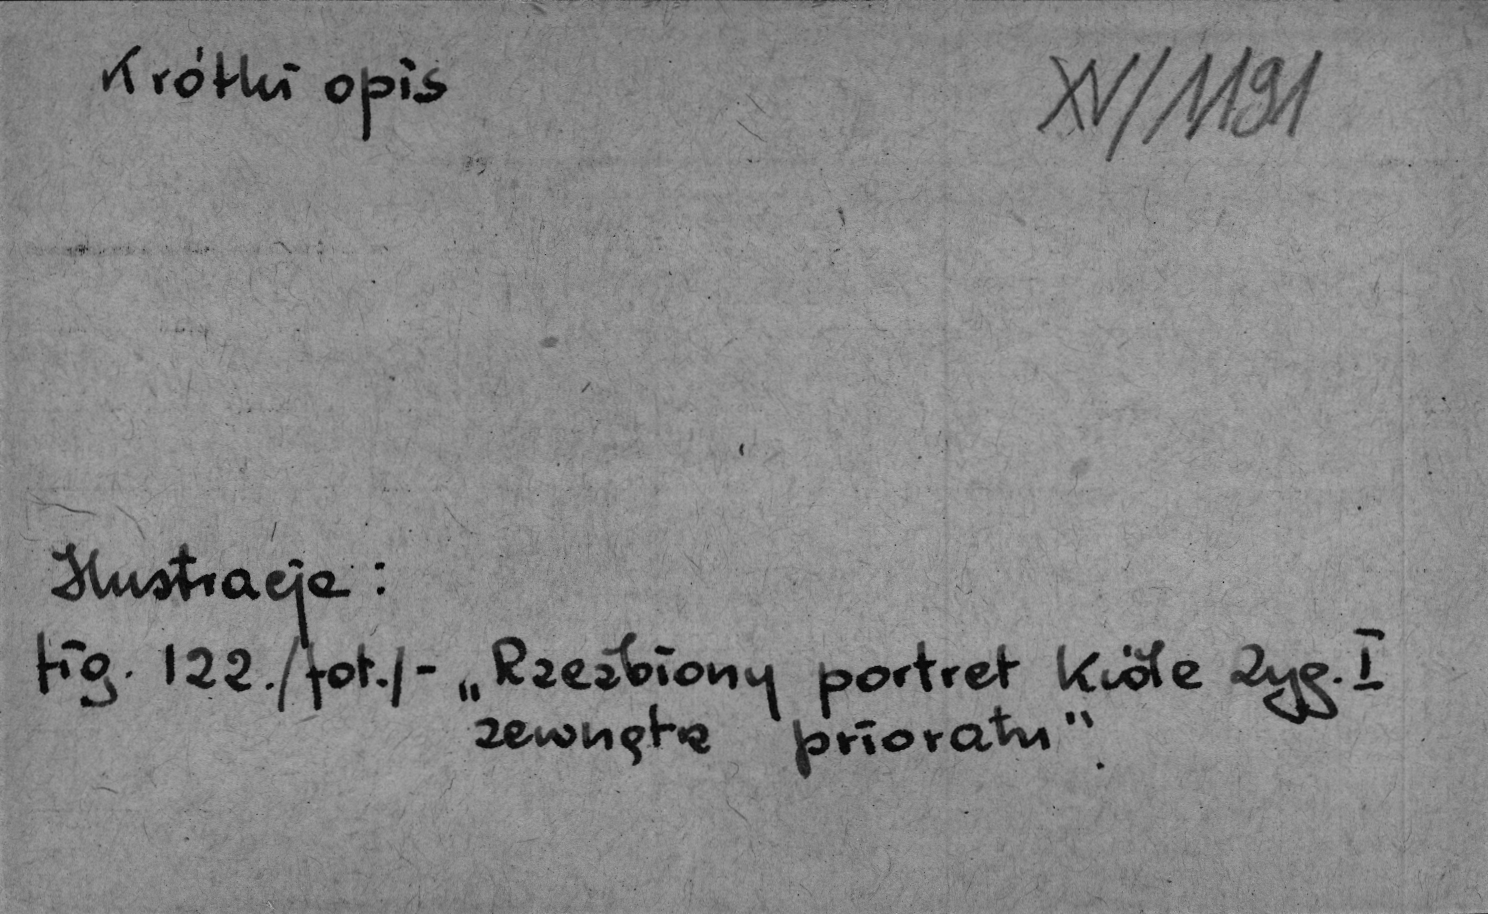 Krótki opis
XV/1191
Ilustracje :
fig. 122./fot./- „Rzeźbiony portret Króla Zyg. I
zewnątrz prioratu”.